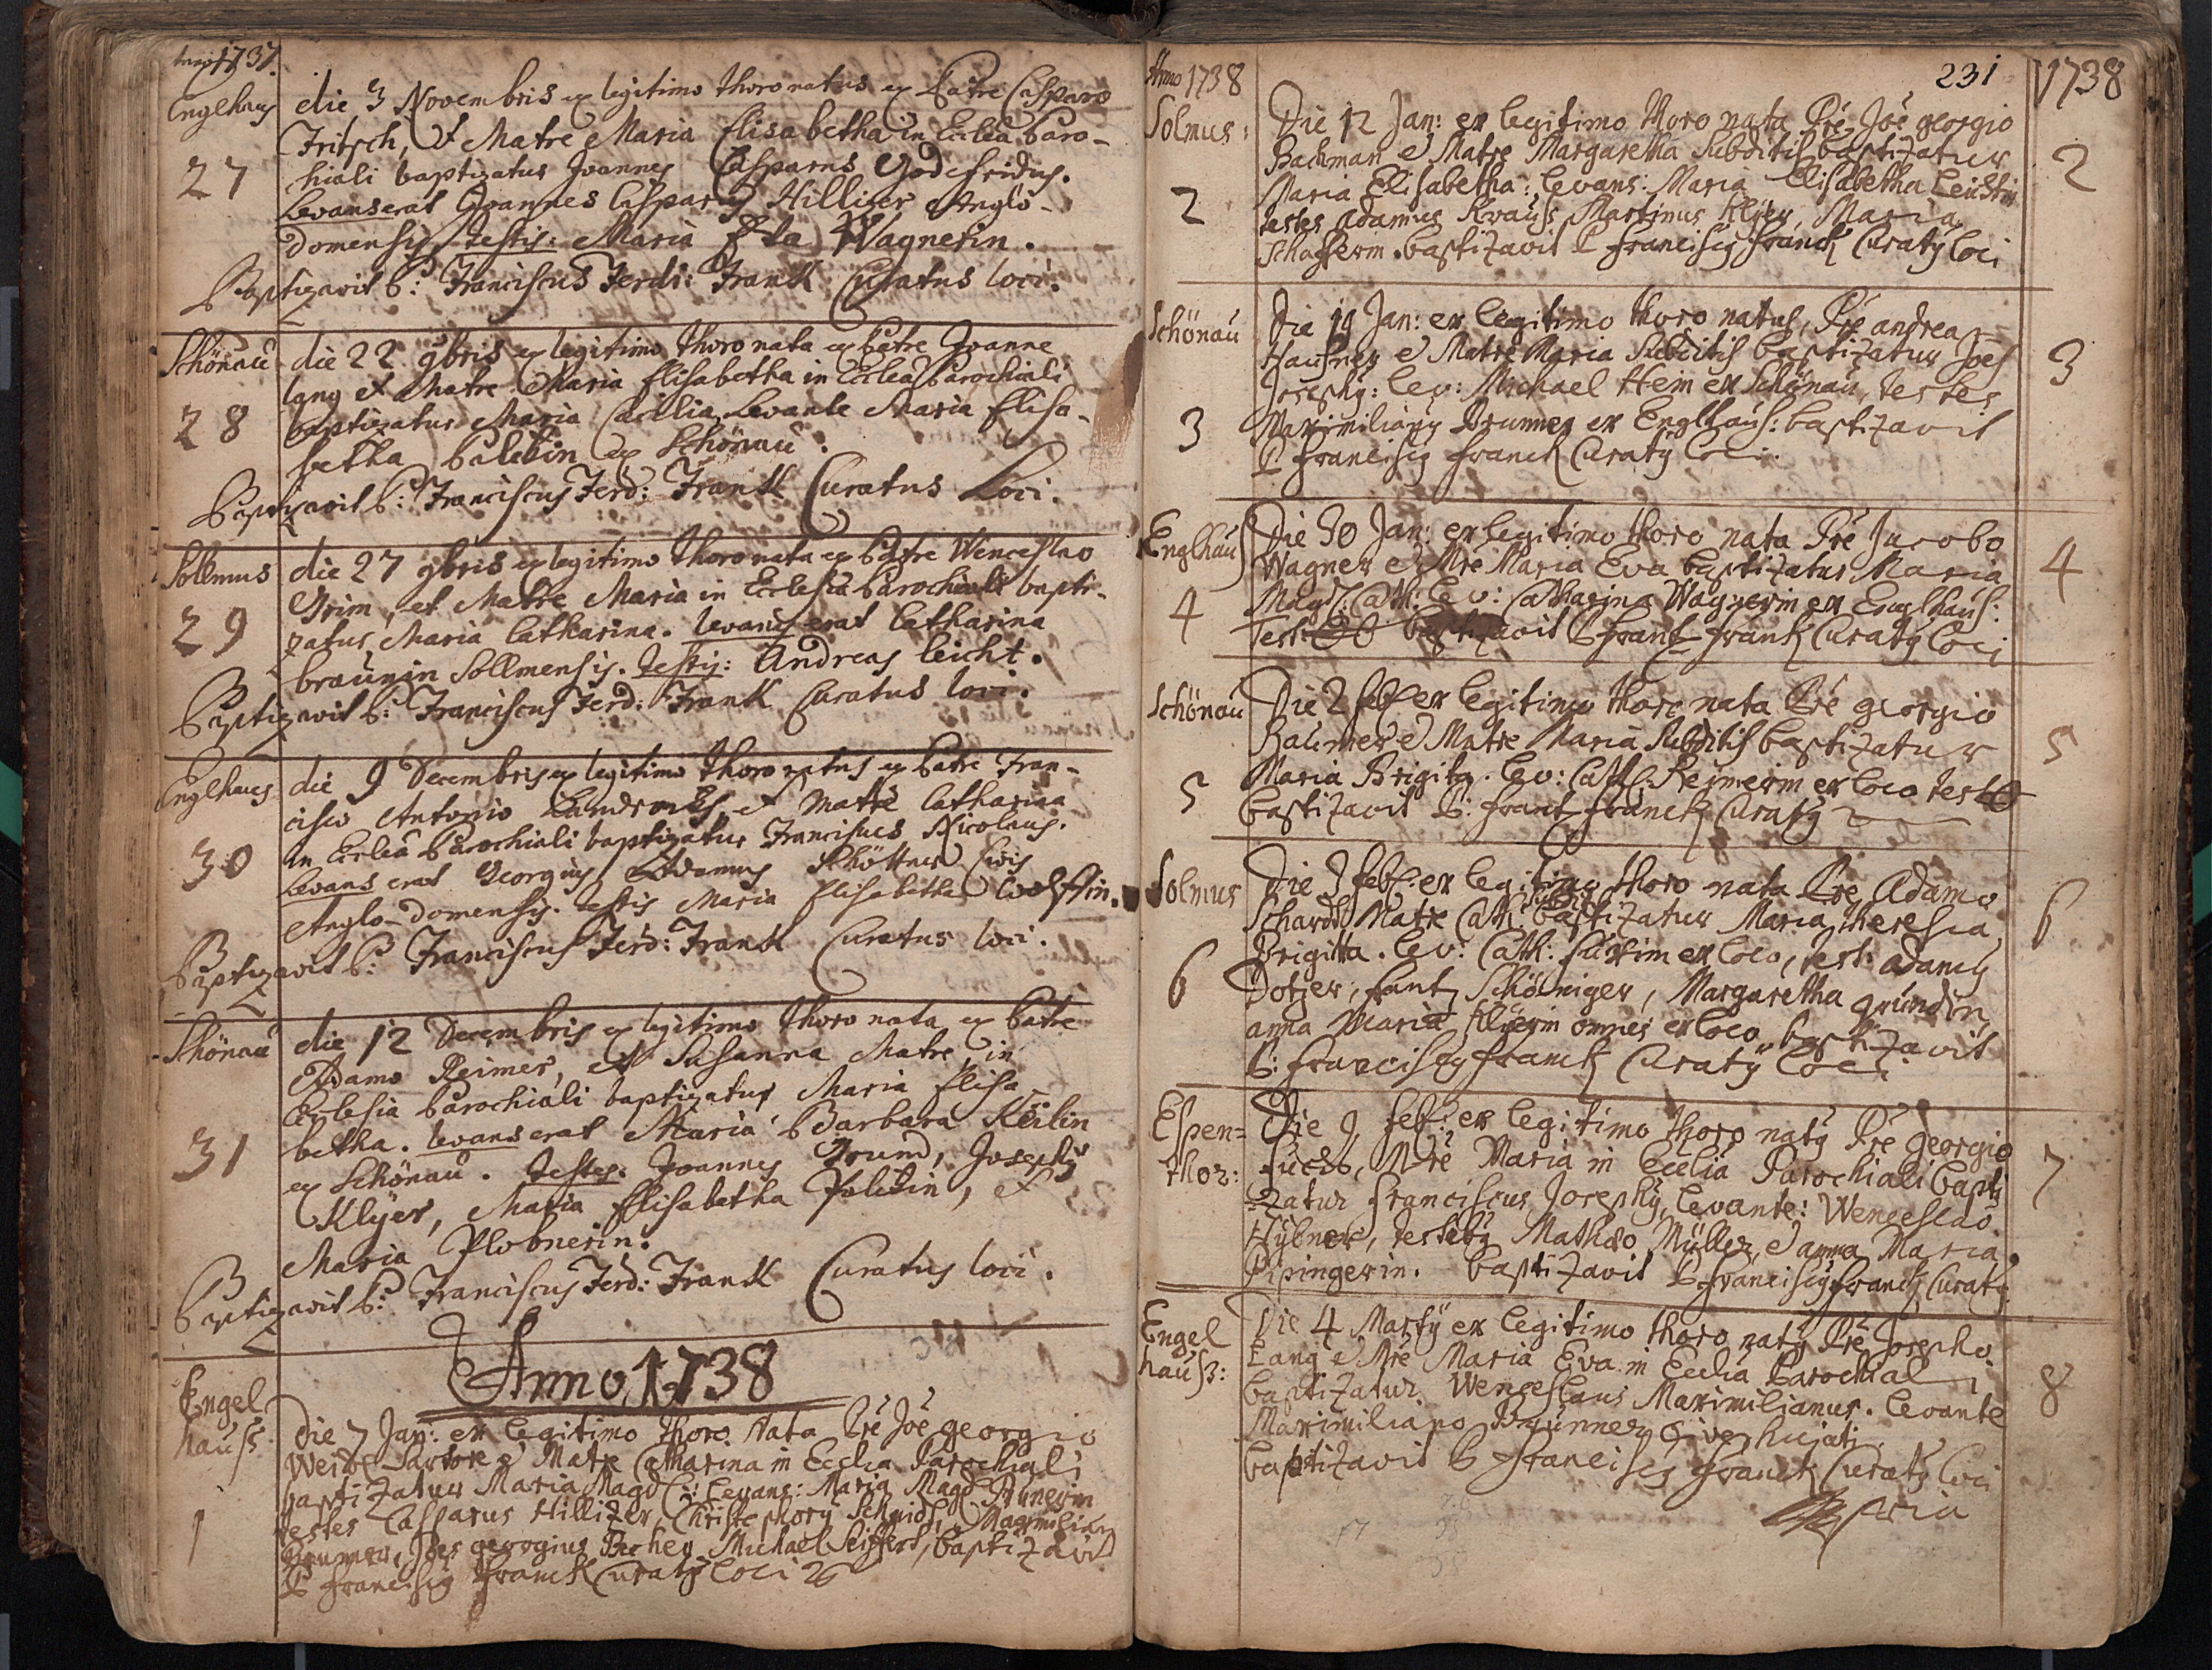 1737.
Englhaus
27
die 3 Novembris ex legitimo thoro natus ex Patre Casparo
Fritsch, et Matre Maria Elisabetha in Ecclea Paro-
chiali baptizatus Joannes Casparus Godefridus.
Levans erat Joannes Casparus Hillizer Anglo-
domensis, Testis: Maria Eva Wagnerin.
Baptizavit P: Franciscus Ferdi: Frank Curatus loci.
Schönau
28
die 22 9bris ex legitimo thoro nata ex Patre Joanne
Lang et Matre Maria Elisabetha in Ecclea Parochiali
baptizatur Maria Cæcilia, Levante Maria Elisa-
betha Paletin ex Schönau.
Baptizavit P: Franciscus Ferd: Frank Curatus Loci.
Sollmus
29
die 27 9bris ex legitimo thoro nata ex Patre Wenceslao
Grim, et Matre Maria in Ecclesia Parochiali bapti-
zatus Maria Catharina. Levans erat Catharina
braunin Sollmensis. Testis: Andreas leicht.
Baptizavit P: Franciscus Ferd: Frank Curatus loci.
Englhaus
30
die 9 Decembris ex legitimo thoro natus ex Patre Fran-
cisco Antonio et Matre Catharina
in Ecclea Parochiali baptizatur Franciscus Nicolaus.
Levans erat Georgius Adamus Schöttner Civis
Anglo-domensis. Testis Maria Elisabetha
Baptizavit P: Franciscus Ferd: Frank Curatus loci.
Schönau
31
die 12 Decembris ex legitimo thoro nata ex Patre
Adamo Reimer, et Susanna Matre, in
Ecclesia Parochiali baptizatur Maria Elisa-
betha. Levans erat Maria Barbara Keilin
ex Schönau. Testes: Joannes Grund, Josephus
Klÿer, Maria Elisabetha Paletin, et
Maria Plobnerin.
Baptizavit P: Franciscus Ferd: Frank Curatus loci.
Anno 1738
Engel
hauss
1
Die 7 Jan: ex legitimo thoro Nata Pre Joe georgio
Sartore e Matre Catharina in Ecclia Parochiali
baptizatur Maria Magd: Levans: Maria Magd:
testes Casparus Hillizer, Christophorus Schmidt, Maximilian
Brumer, Joes georgius Michael Seiffert, baptizavit
P franciscus franck Curatus loci
Anno 1738
231
1738
Solmus:
2
Die 12 Jan: ex legitimo thoro nata Pre Joe georgio
Bachman e Matre Margaretha Subditis baptizatur
Maria Elisabetha: levans: Maria Elisabetha Leichtin
testes Adamus Krauss, Martinus Klÿer, Maria
Schafferin. baptizavit P franciscus franck Curatus loci
2
Schönau
3
Die 19 Jan: ex legitimo thoro natus, Pre andrea
Haussner e Matre Maria Subditis baptizatur Joes
Josephus: lev: Michael Hein ex Schönau, testes
Maximilianus Brunner ex Englhaus: baptizavit
P franciscus franck Curatus loci.
3
Englhaus
4
Die 30 Jan: ex legitimo thoro nata Pre Jacobo
Wagner e Mre Maria Eva baptizatur Maria
Magd: Cath: lev: Catharina Wagnerin ex Englhaus:
Test: baptizavit P frant franck Curatus loci
4
Schönau
5
Die 2 feb: ex legitimo thoro nata Pre georgio
e Matre Maria Subditis baptizatur
Maria Brigita. lev: Cath: Reimerin ex loco test
baptizavit P: frant franck Curatus
5
Solmus
6
Die 3 feb: ex legitimo thoro nata Pre Adamo
Schardt Matre Cath: baptizatur Maria theresia
Brigitta. lev: Cath: ex loco, test: adamus
Dotzer, frantz Schöniger, Margaretha gründin,
anna Maria Klÿerin omnes ex loco, baptizavit
P: franciscus franck Curatus loci
6
Espen=
thor:
Die 9 feb: ex legitimo thoro natus Pre georgio
fuchs, Mre Maria in Ecclia Parochiali bapti
zatur franciscus Josephus, levante: Wenceslao
Hübner, testibus Mathæo Müller, e anna Maria
Pipingerin. baptizavit P franciscus franck Curatus
7
Engel
hauss:
Die 4 Martÿ ex legitimo thoro natus Pre Josepho
Lang e Mre Maria Eva in Ecclia Parochiali
baptizatur Wenceslaus Maximilianus. levante
Maximiliano Brunner Cive hujati.
baptizavit P franciscus franck Curatus loci
8